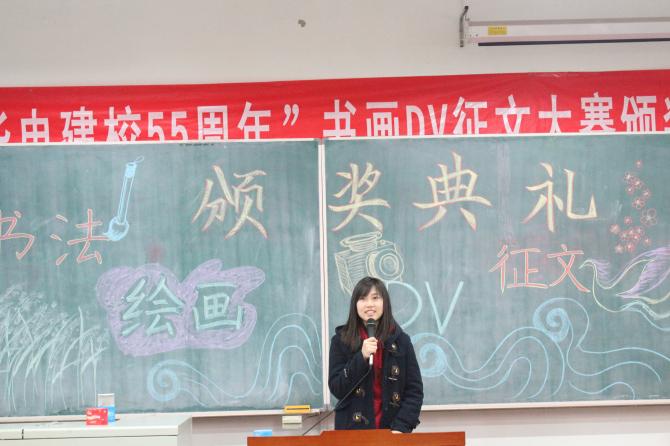 华电建校55周年”书画DV征文大赛颁奖
颁奖典礼
书法
征文
绘画
DV